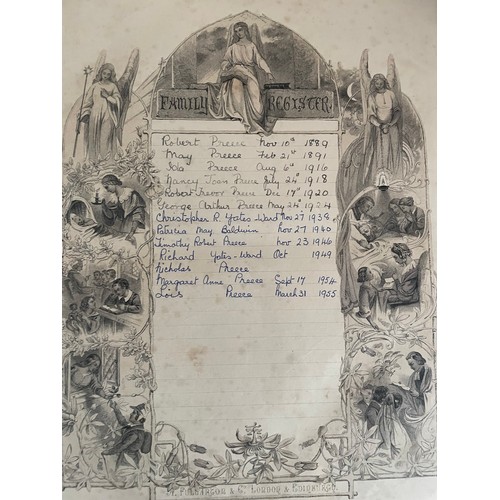 FAMILY REGISTER.
Robert Preece Nov 10th 1889
May Preece Feb 21st 1891
Preece Aug 6th 1916
Nancy Joan Preece July 24th 1918
Robert Trevor Preece Dec 17th 1920
George Arthur Preece May 24th 1924
Christopher R. Yates-Ward Nov 27 1939
Patricia May Baldwin Nov 27 1940
Timothy Robert Preece Nov 23 1946
Richard Yates-Ward Oct 1949
Nicholas Preece
Margaret Anne Preece Sept 17 1954
Lois Preece March 31 1955
& Co. LONDON & EDINBURGH.